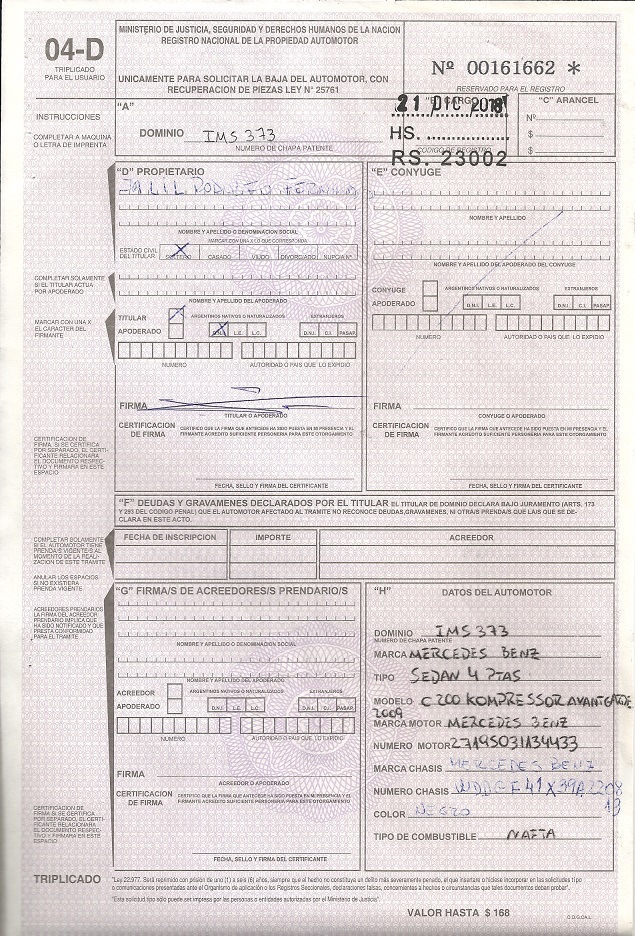 04-D
TRIPLICADO
PARA EL USUARIO
MINISTERIO DE JUSTICIA, SEGURIDAD Y DERECHOS HUMANOS DE LA NACION
REGISTRO NACIONAL DE LA PROPIEDAD AUTOMOTOR
UNICAMENTE PARA SOLICITAR LA BAJA DEL AUTOMOTOR, CON
RECUPERACION DE PIEZAS LEY N° 25761
Nº 00161662 *
RESERVADO PARA EL REGISTRO
INSTRUCCIONES
COMPLETAR A MAQUINA
O LETRA DE IMPRENTA
"A"
DOMINIO IMS 373
NUMERO DE CHAPA PATENTE
21 DIC
HS.
CODIGO DE REGISTRO
RS. 23002
"C" ARANCEL
Nº
$
$
"D" PROPIETARIO
NOMBRE Y APELLIDO O DENOMINACION SOCIAL
MARCAR CON UNA X LO QUE CORRESPONDA
ESTADO CIVIL
DEL TITULAR
SOLTERO CASADO VIUDO DIVORCIADO NUPCIA Nº
COMPLETAR SOLAMENTE
SI EL TITULAR ACTUA
POR APODERADO
NOMBRE Y APELLIDO DEL APODERADO
MARCAR CON UNA X
EL CARACTER DEL
FIRMANTE
TITULAR X ARGENTINOS NATIVOS O NATURALIZADOS EXTRANJEROS
APODERADO D.N.I. L.E. L.C. D.N.I. C.I. PASAP.
NUMERO AUTORIDAD O PAIS QUE LO EXPIDIO
FIRMA
TITULAR O APODERADO
CERTIFICACION
DE FIRMA
CERTIFICO QUE LA FIRMA QUE ANTECEDE HA SIDO PUESTA EN MI PRESENCIA Y EL
FIRMANTE ACREDITO SUFICIENTE PERSONERIA PARA ESTE OTORGAMIENTO
FECHA, SELLO Y FIRMA DEL CERTIFICANTE
CERTIFICACION DE
FIRMA, SI SE CERTIFICA
POR SEPARADO, EL CERTI-
FICANTE RELACIONARA
EL DOCUMENTO RESPEC-
TIVO Y FIRMARA EN ESTE
ESPACIO
"E" CONYUGE
NOMBRE Y APELLIDO
NOMBRE Y APELLIDO DEL APODERADO DEL CONYUGE
CONYUGE ARGENTINOS NATIVOS O NATURALIZADOS EXTRANJEROS
APODERADO D.N.I. L.E. L.C. D.N.I. C.I. PASAP.
NUMERO AUTORIDAD O PAIS QUE LO EXPIDIO
FIRMA
CONYUGE O APODERADO
CERTIFICACION
DE FIRMA
CERTIFICO QUE LA FIRMA QUE ANTECEDE HA SIDO PUESTA EN MI PRESENCIA Y EL
FIRMANTE ACREDITO SUFICIENTE PERSONERIA PARA ESTE OTORGAMIENTO
FECHA, SELLO Y FIRMA DEL CERTIFICANTE
"F" DEUDAS Y GRAVAMENES DECLARADOS POR EL TITULAR EL TITULAR DE DOMINIO DECLARA BAJO JURAMENTO (ARTS. 173
Y 293 DEL CODIGO PENAL) QUE EL AUTOMOTOR AFECTADO AL TRAMITE NO RECONOCE DEUDAS, GRAVAMENES, NI OTRA/S PRENDA/S QUE LA/S QUE SE DE-
CLARA EN ESTE ACTO.
COMPLETAR SOLAMENTE
SI EL AUTOMOTOR TIENE
PRENDA/S VIGENTE/S AL
MOMENTO DE LA REALI-
ZACION DE ESTE TRAMITE
ANULAR LOS ESPACIOS
SI NO EXISTIERA
PRENDA VIGENTE
FECHA DE INSCRIPCION IMPORTE ACREEDOR
ACREEDORES PRENDARIOS
LA FIRMA DEL ACREEDOR
PRENDARIO IMPLICA QUE
HA SIDO NOTIFICADO Y QUE
PRESTA CONFORMIDAD
PARA EL TRAMITE
"G" FIRMA/S DE ACREEDORES/S PRENDARIO/S
NOMBRE Y APELLIDO O DENOMINACION SOCIAL
NOMBRE Y APELLIDO DEL APODERADO
ACREEDOR ARGENTINOS NATIVOS O NATURALIZADOS EXTRANJEROS
APODERADO D.N.I. L.E. L.C. D.N.I. C.I. PASAP.
NUMERO AUTORIDAD O PAIS QUE LO EXPIDIO
FIRMA
ACREEDOR O APODERADO
CERTIFICACION
DE FIRMA
CERTIFICO QUE LA FIRMA QUE ANTECEDE HA SIDO PUESTA EN MI PRESENCIA Y EL
FIRMANTE ACREDITO SUFICIENTE PERSONERIA PARA ESTE OTORGAMIENTO
FECHA, SELLO Y FIRMA DEL CERTIFICANTE
CERTIFICACION DE
FIRMA SI SE CERTIFICA
POR SEPARADO, EL CERTI-
FICANTE RELACIONARA
EL DOCUMENTO RESPEC-
TIVO Y FIRMARA EN ESTE
ESPACIO
"H" DATOS DEL AUTOMOTOR
DOMINIO IMS 373
NUMERO DE CHAPA PATENTE
MARCA MERCEDES BENZ
TIPO SEDAN 4 PTAS
MODELO C 200 KOMPRESSOR AVANTGARDE
2009
MARCA MOTOR MERCEDES BENZ
NUMERO MOTOR 27195031134433
MARCA CHASIS MERCEDES BENZ
NUMERO CHASIS
COLOR NEGRO
TIPO DE COMBUSTIBLE NAFTA
TRIPLICADO
"Ley 22.977. Será reprimido con prisión de uno (1) a seis (6) años, siempre que el hecho no constituya un delito más severamente penado, el que insertare o hiciese incorporar en las solicitudes tipo
o comunicaciones presentadas ante el Organismo de aplicación o los Registros Seccionales, declaraciones falsas, concernientes a hechos o circunstancias que tales documentos deban probar".
"Esta solicitud tipo sólo puede ser impresa por las personas o entidades autorizadas por el Ministerio de Justicia"
VALOR HASTA $ 168